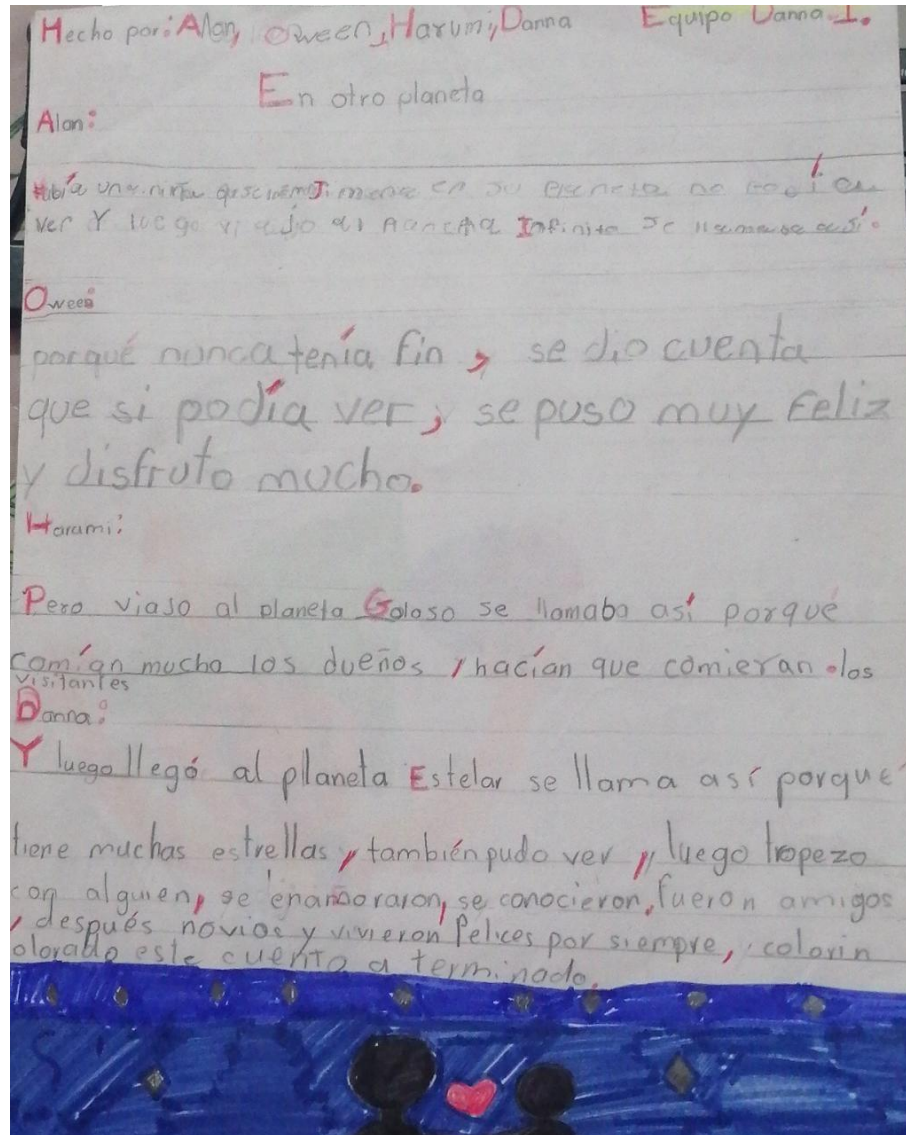 Hecho por: Alan, Oween, Harumi, Danna Equipo Danna I.
En otro planeta
Alan:
Había una niña en su no podía
ver Y luego al Infinito se llamaba así.
Oween
porqué nunca tenía fin, se dio cuenta
que si podía ver, se puso muy Feliz
y disfruto mucho.
Harumi:
Pero viajo al planeta Goloso se llamaba así porqué
comían mucho los dueños, hacían que comieran .los
visitantes
Danna:
Y luego llegó al planeta Estelar se llama así porque
tiene muchas estrellas, también pudo ver, luego tropezo
con alguien, se enamoraron, se conocieron, fueron amigos
, después novios y vivieron felices por siempre, colorin
olorado este cuento a terminado.